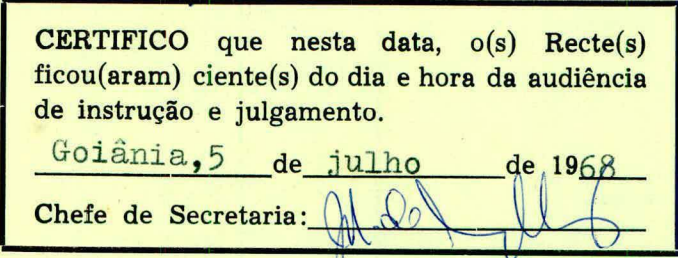 CERTIFICO que nesta data, o(s) Recte(s)
ficou(aram) ciente(s) do dia e hora da audiência
de instrução e julgamento.
Goiânia,5 de julho de 1968
Chefe de Secretaria: